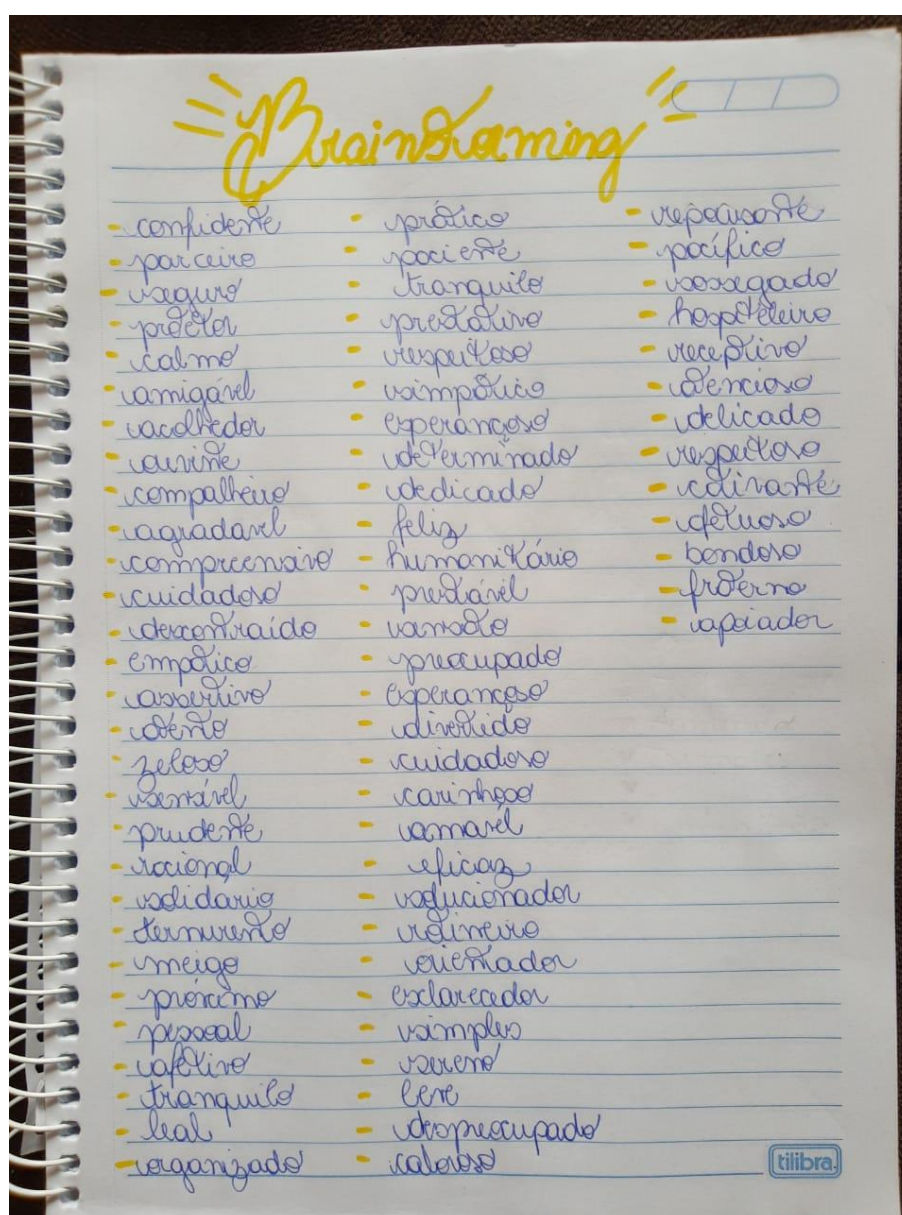 Brainstorming
- confidente
- parceiro
- seguro
- protetor
- calmo
- amigável
- acolhedor
- ouvinte
- compalheiro
- agradavel
- compreensivo
- cuidadoso
- descontraído
- empático
- assertivo
- atento
- zeloso
- sensável
- prudente
- racional
- solidario
- ternurento
- meigo
- próximo
- pessoal
- afetivo
- tranquilo
- leal
- organizado
- prático
- paciente
- tranquilo
- prestativo
- respeitoso
- simpático
- esperançoso
- determinado
- dedicado
- feliz
- humanitário
- prestável
- sensato
- preocupado
- esperançoso
- divertido
- cuidadoso
- carinhoso
- amavél
- eficaz
- solucionador
- rotineiro
- orientador
- esclarecedor
- simples
- sereno
- leve
- despreocupado
- caloroso
- repousante
- pacífico
- sossegado
- hospiteleiro
- receptivo
- atencioso
- delicado
- respeitoso
- cativante
- afetuoso
- bondoso
- fraterno
- apoiador
tilibra